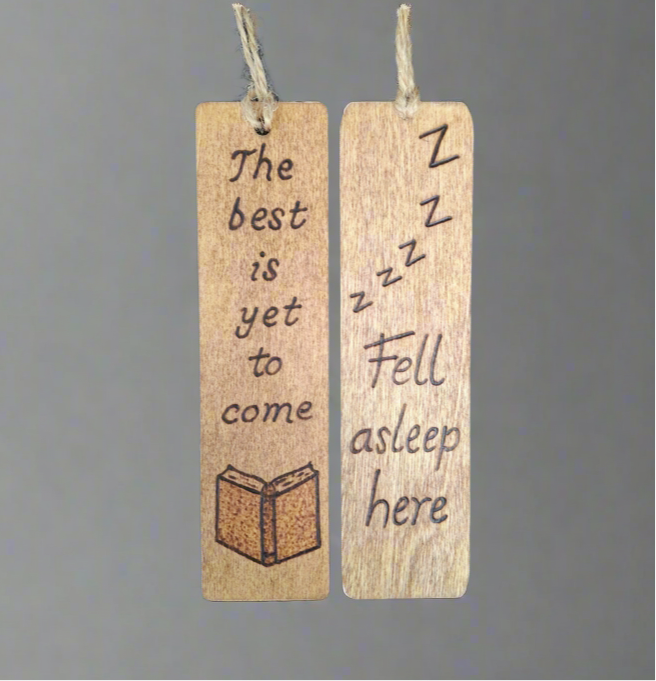 The
best
is
yet
to
come
Z
Z
Z
Z
Z
Fell
asleep
here